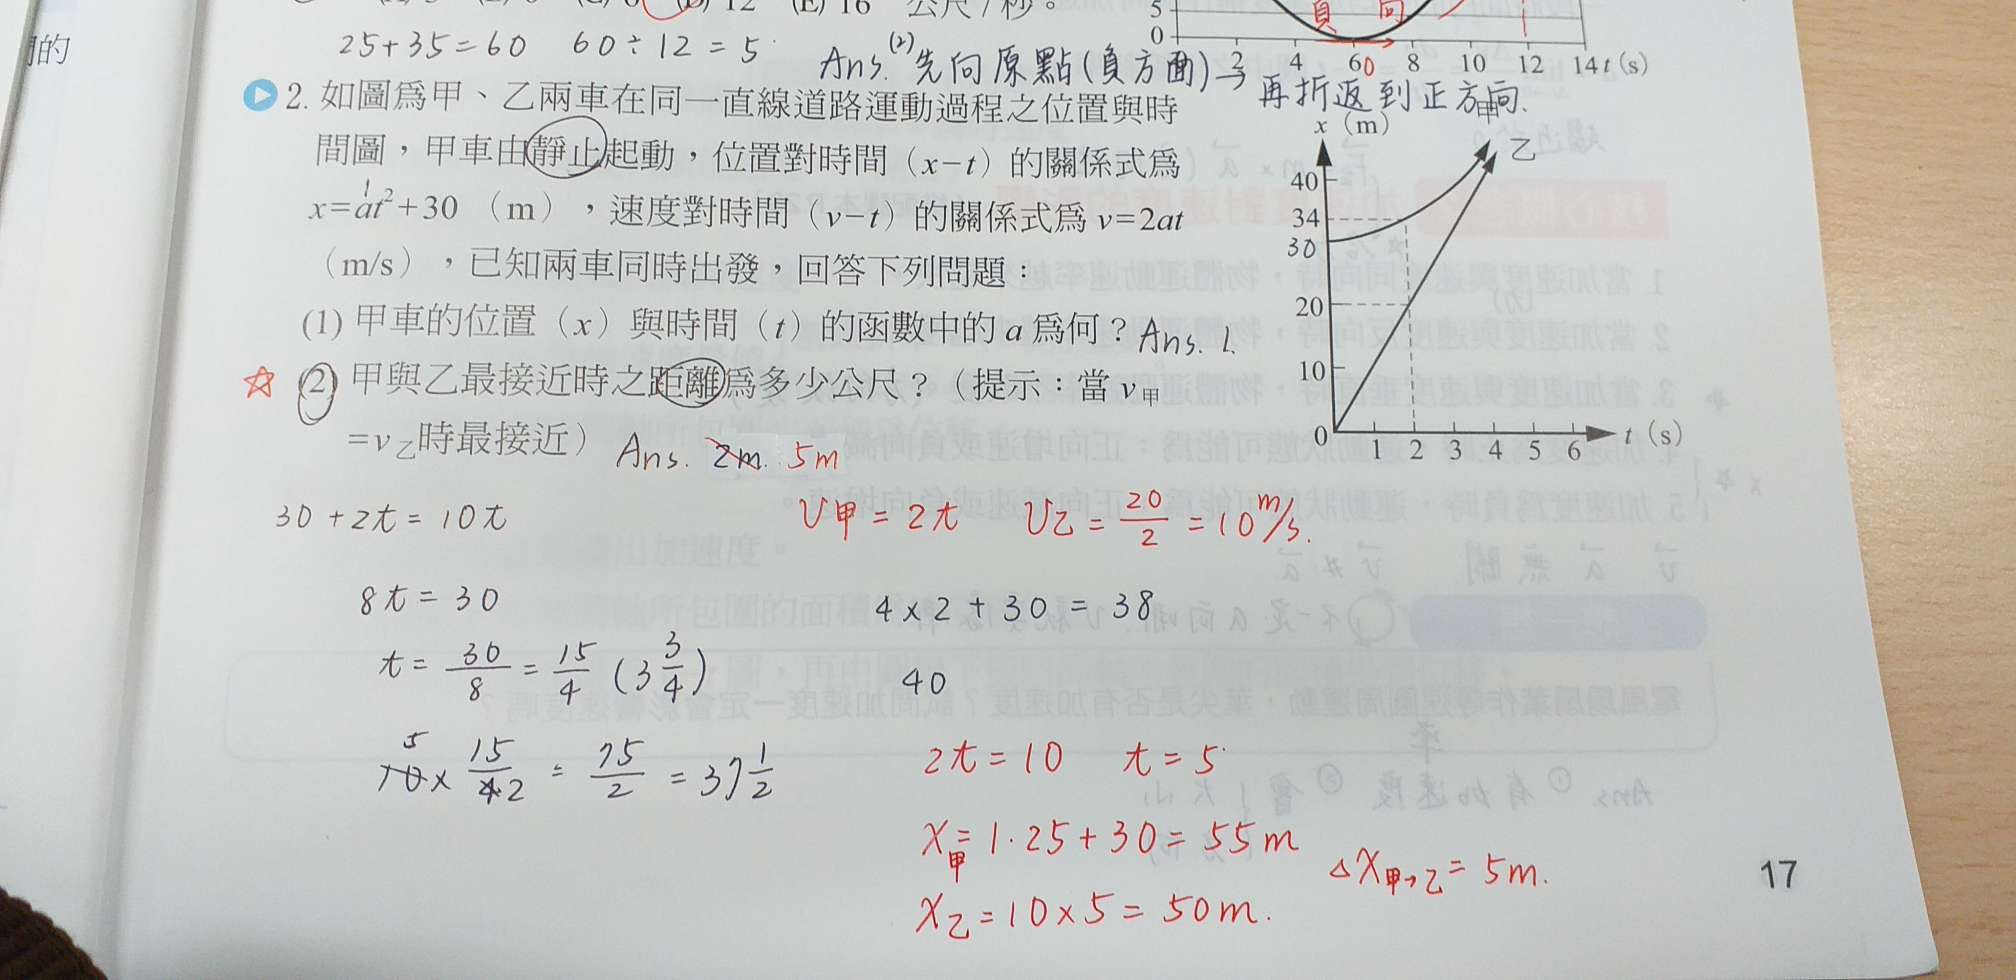 們的
(A) 3 (B) 6 (C) 8 (D) 12 (E) 16 公尺/秒。
25+35=60 60÷12=5
5
0
2 4 6 8 10 12 14 t (s)
負 向
0
Ans. (2) 先向原點(負方面)→再折返到正方向.
2. 如圖為甲、乙兩車在同一直線道路運動過程之位置與時
間圖，甲車由靜止起動，位置對時間（x−t）的關係式為
x=at²+30 （m），速度對時間（v−t）的關係式為 v=2at
1
（m/s），已知兩車同時出發，回答下列問題：
(1) 甲車的位置（x）與時間（t）的函數中的 a 為何？Ans. 1.
(2) 甲與乙最接近時之距離為多少公尺？（提示：當 v甲
=v乙時最接近） Ans. 2m. 5m
x (m)
甲
乙
40
34
30
20
10
0 1 2 3 4 5 6 t (s)
30+2t=10t
8t=30
t=30/8=15/4 (3 3/4)
10×15/4 = 75/2 = 37 1/2
5 2
V甲=2t V乙=20/2=10 m/s.
4×2+30=38
40
2t=10 t=5
X甲=1·25+30=55m
X乙=10×5=50m.
△X甲→乙=5m.
17